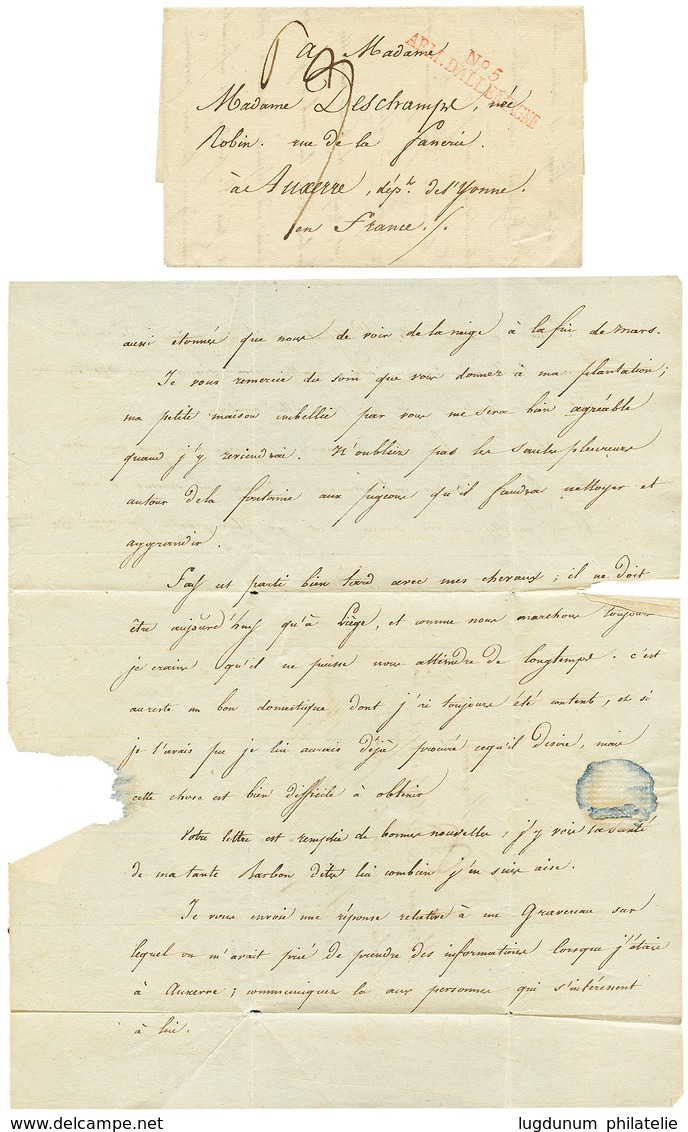 a Madame
No. 5
ARM. D'ALLEMAGNE
Madame Deschamps, née
Robin. rue de la fanerie.
à Auxerre, dépt. de l'Yonne.
en France./.
aussi étonnés que nous de voir de la neige à la fin de mars.
Je vous remercie du soin que vous donnez à ma plantation;
ma petite maison embellie par vous me sera bien agréable
quand j'y reviendrai. N'oubliez pas les saules pleureurs
autour de la fontaine aux pigeons qu'il faudra nettoyer et
aggrandir.
est parti bien tard avec mes chevaux; il ne doit
être aujourd'huy qu'à Liège, et comme nous marchons toujours
je crains qu'il ne puisse nous atteindre de longtemps. c'est
au reste un bon domestique dont j'ai toujours été content, et si
je l'avais pu je lui aurais déjà procuré cequ'il desire, mais
cette chose est bien difficile à obtenir
Votre lettre est remplie de bonnes nouvelles, j'y vois la santé
de ma tante Barbon dites lui combien j'en suis aise.
Je vous envoie une réponse relative à un Gravereau sur
lequel on m'avait prié de prendre des informations lorsque j'étais
à Auxerre; communiquez la aux personnes qui s'intéressent
à lui.
lugdunum philatelie